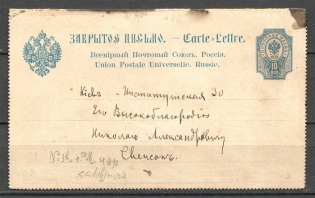 ЗАКРЫТОЕ ПИСЬМО. — Carte-Lettre.
Всемірный Почтовый Союзъ. Россія.
Union Postale Universelle. Russie.
10
Кіевъ - Институтская 30
Его Высокоблагородію
Николаю Александровичу